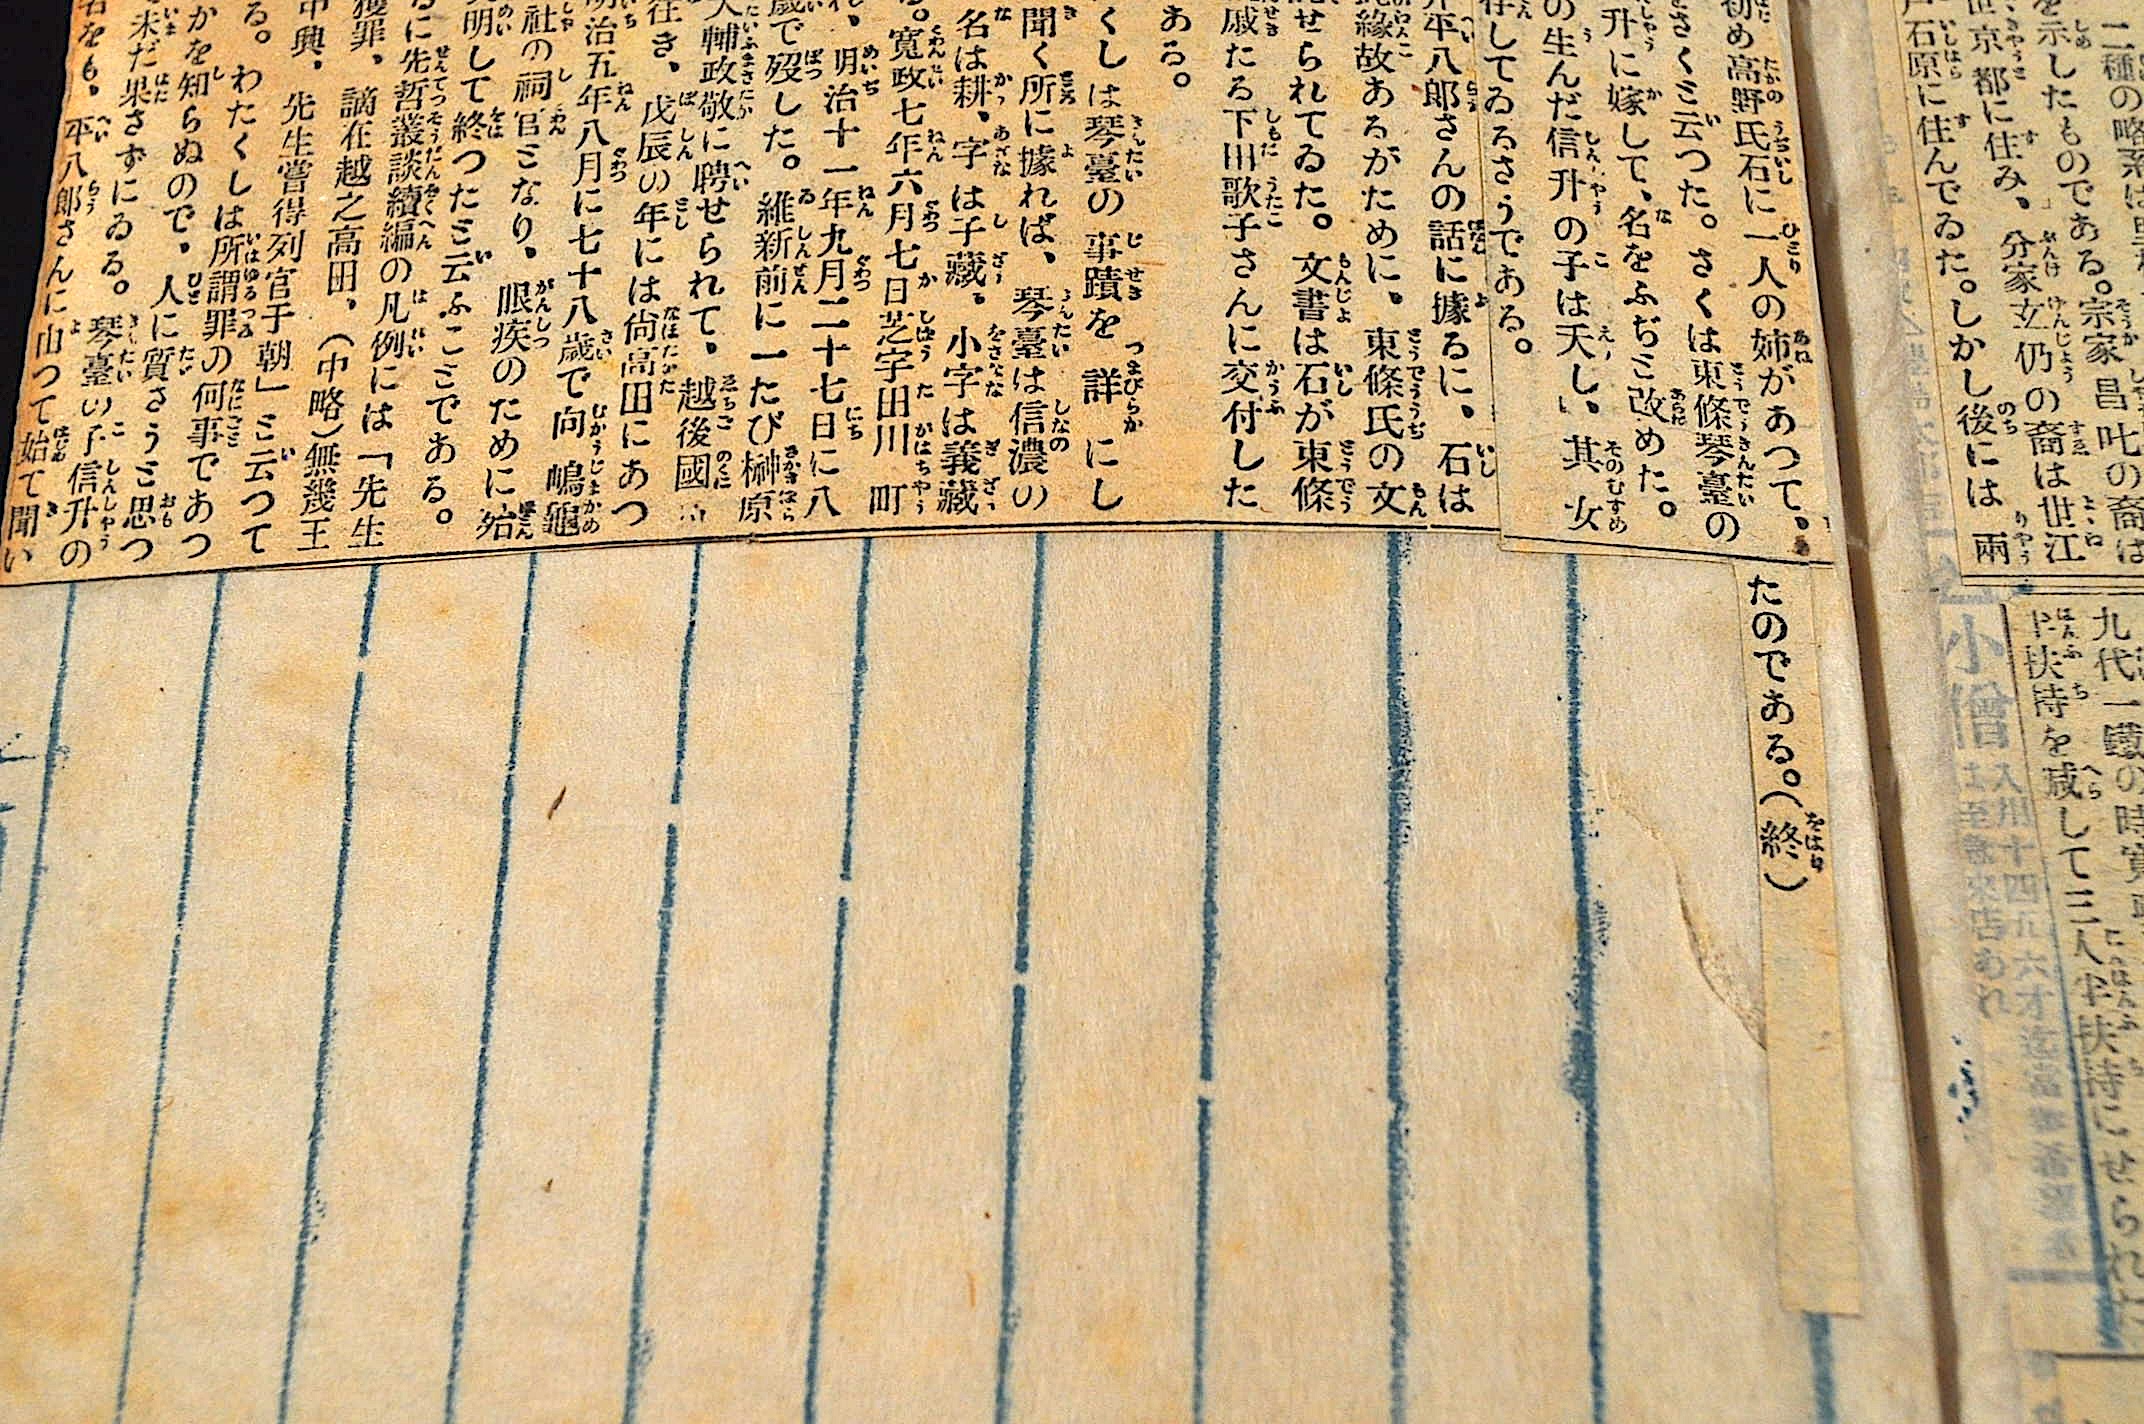 二種の略系は
を示したものである。宗家昌叱の裔は
世京都に住み、分家玄仍の裔は世江
戸石原に住んでゐた。しかし後には兩
九代一鐵の時寛政
半扶持を減して三人半扶持にせられた
初め高野氏石に一人の姉があつて、
さくと云つた。さくは東條琴臺の
升に嫁して、名をふぢと改めた。
の生んだ信升の子は夭し、其女
存してゐるさうである。
平八郎さんの話に據るに、石は
縁故あるがために、東條氏の文
せられてゐた。文書は石が東條
戚たる下田歌子さんに交付した
たのである。(終)
ある。
くしは琴臺の事蹟を詳にし
聞く所に據れば、琴臺は信濃の
名は耕、字は子藏、小字は義藏
寛政七年六月七日芝宇田川町
、明治十一年九月二十七日に八
歳で歿した。維新前に一たび榊原
大輔政敬に聘せられて、越後國
往き、戊辰の年には尚高田にあつ
明治五年八月に七十八歳で向嶋龜
社の祠官となり、眼疾のために殆
明して終つたと云ふことである。
に先哲叢談續編の凡例には「先生
獲罪、謫在越之高田、(中略)無幾王
中興、先生嘗得列官于朝」と云つて
る。わたくしは所謂罪の何事であつ
かを知らぬので、人に質さうと思つ
未だ果さずにゐる。琴臺の子信升の
名をも、平八郎さんに由つて始て聞い
小僧
入用十四五六才